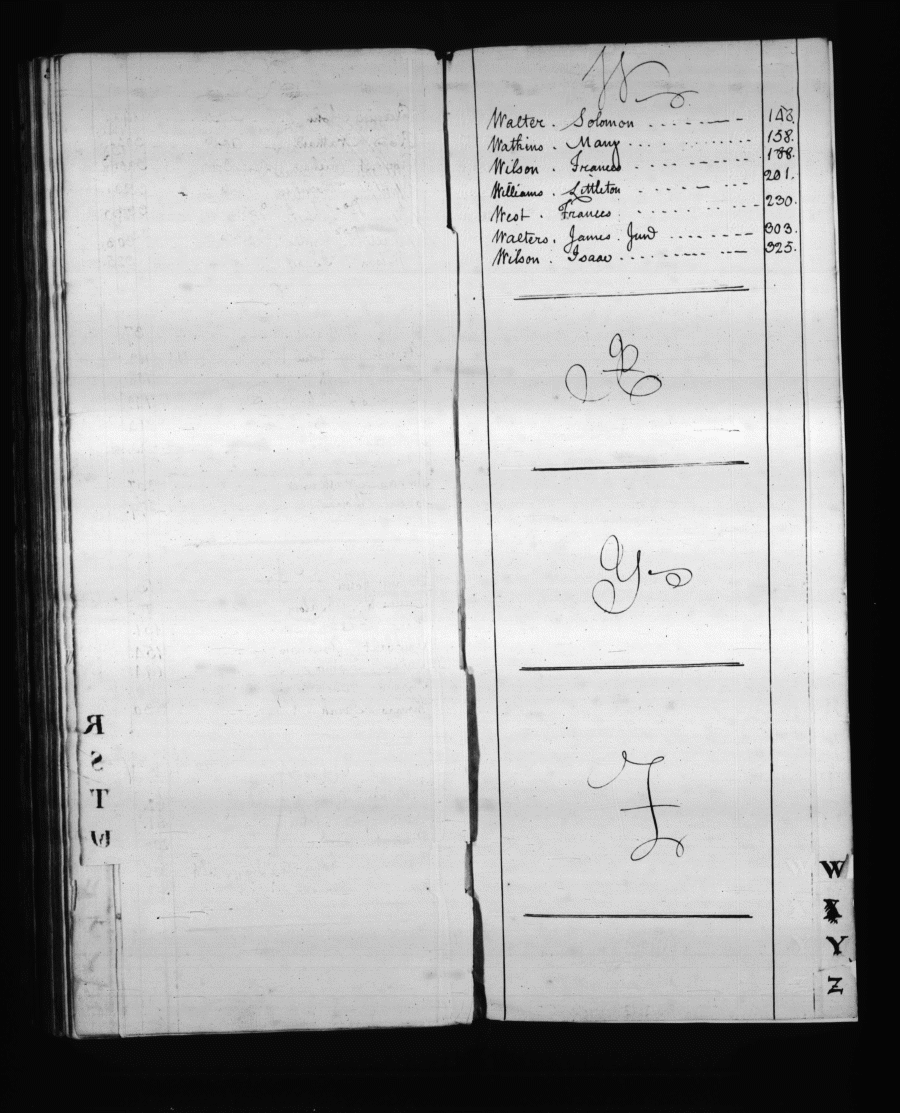 W
Walter. Solomon 148.
Watkins. Mary 158.
Wilson. Frances 188.
Williams. Littleton 201.
West. Frances 230.
Walters. James. Junr 303.
Wilson. Isaac 325.
X
Y
Z
R
S
T
W
W
X
Y
Z